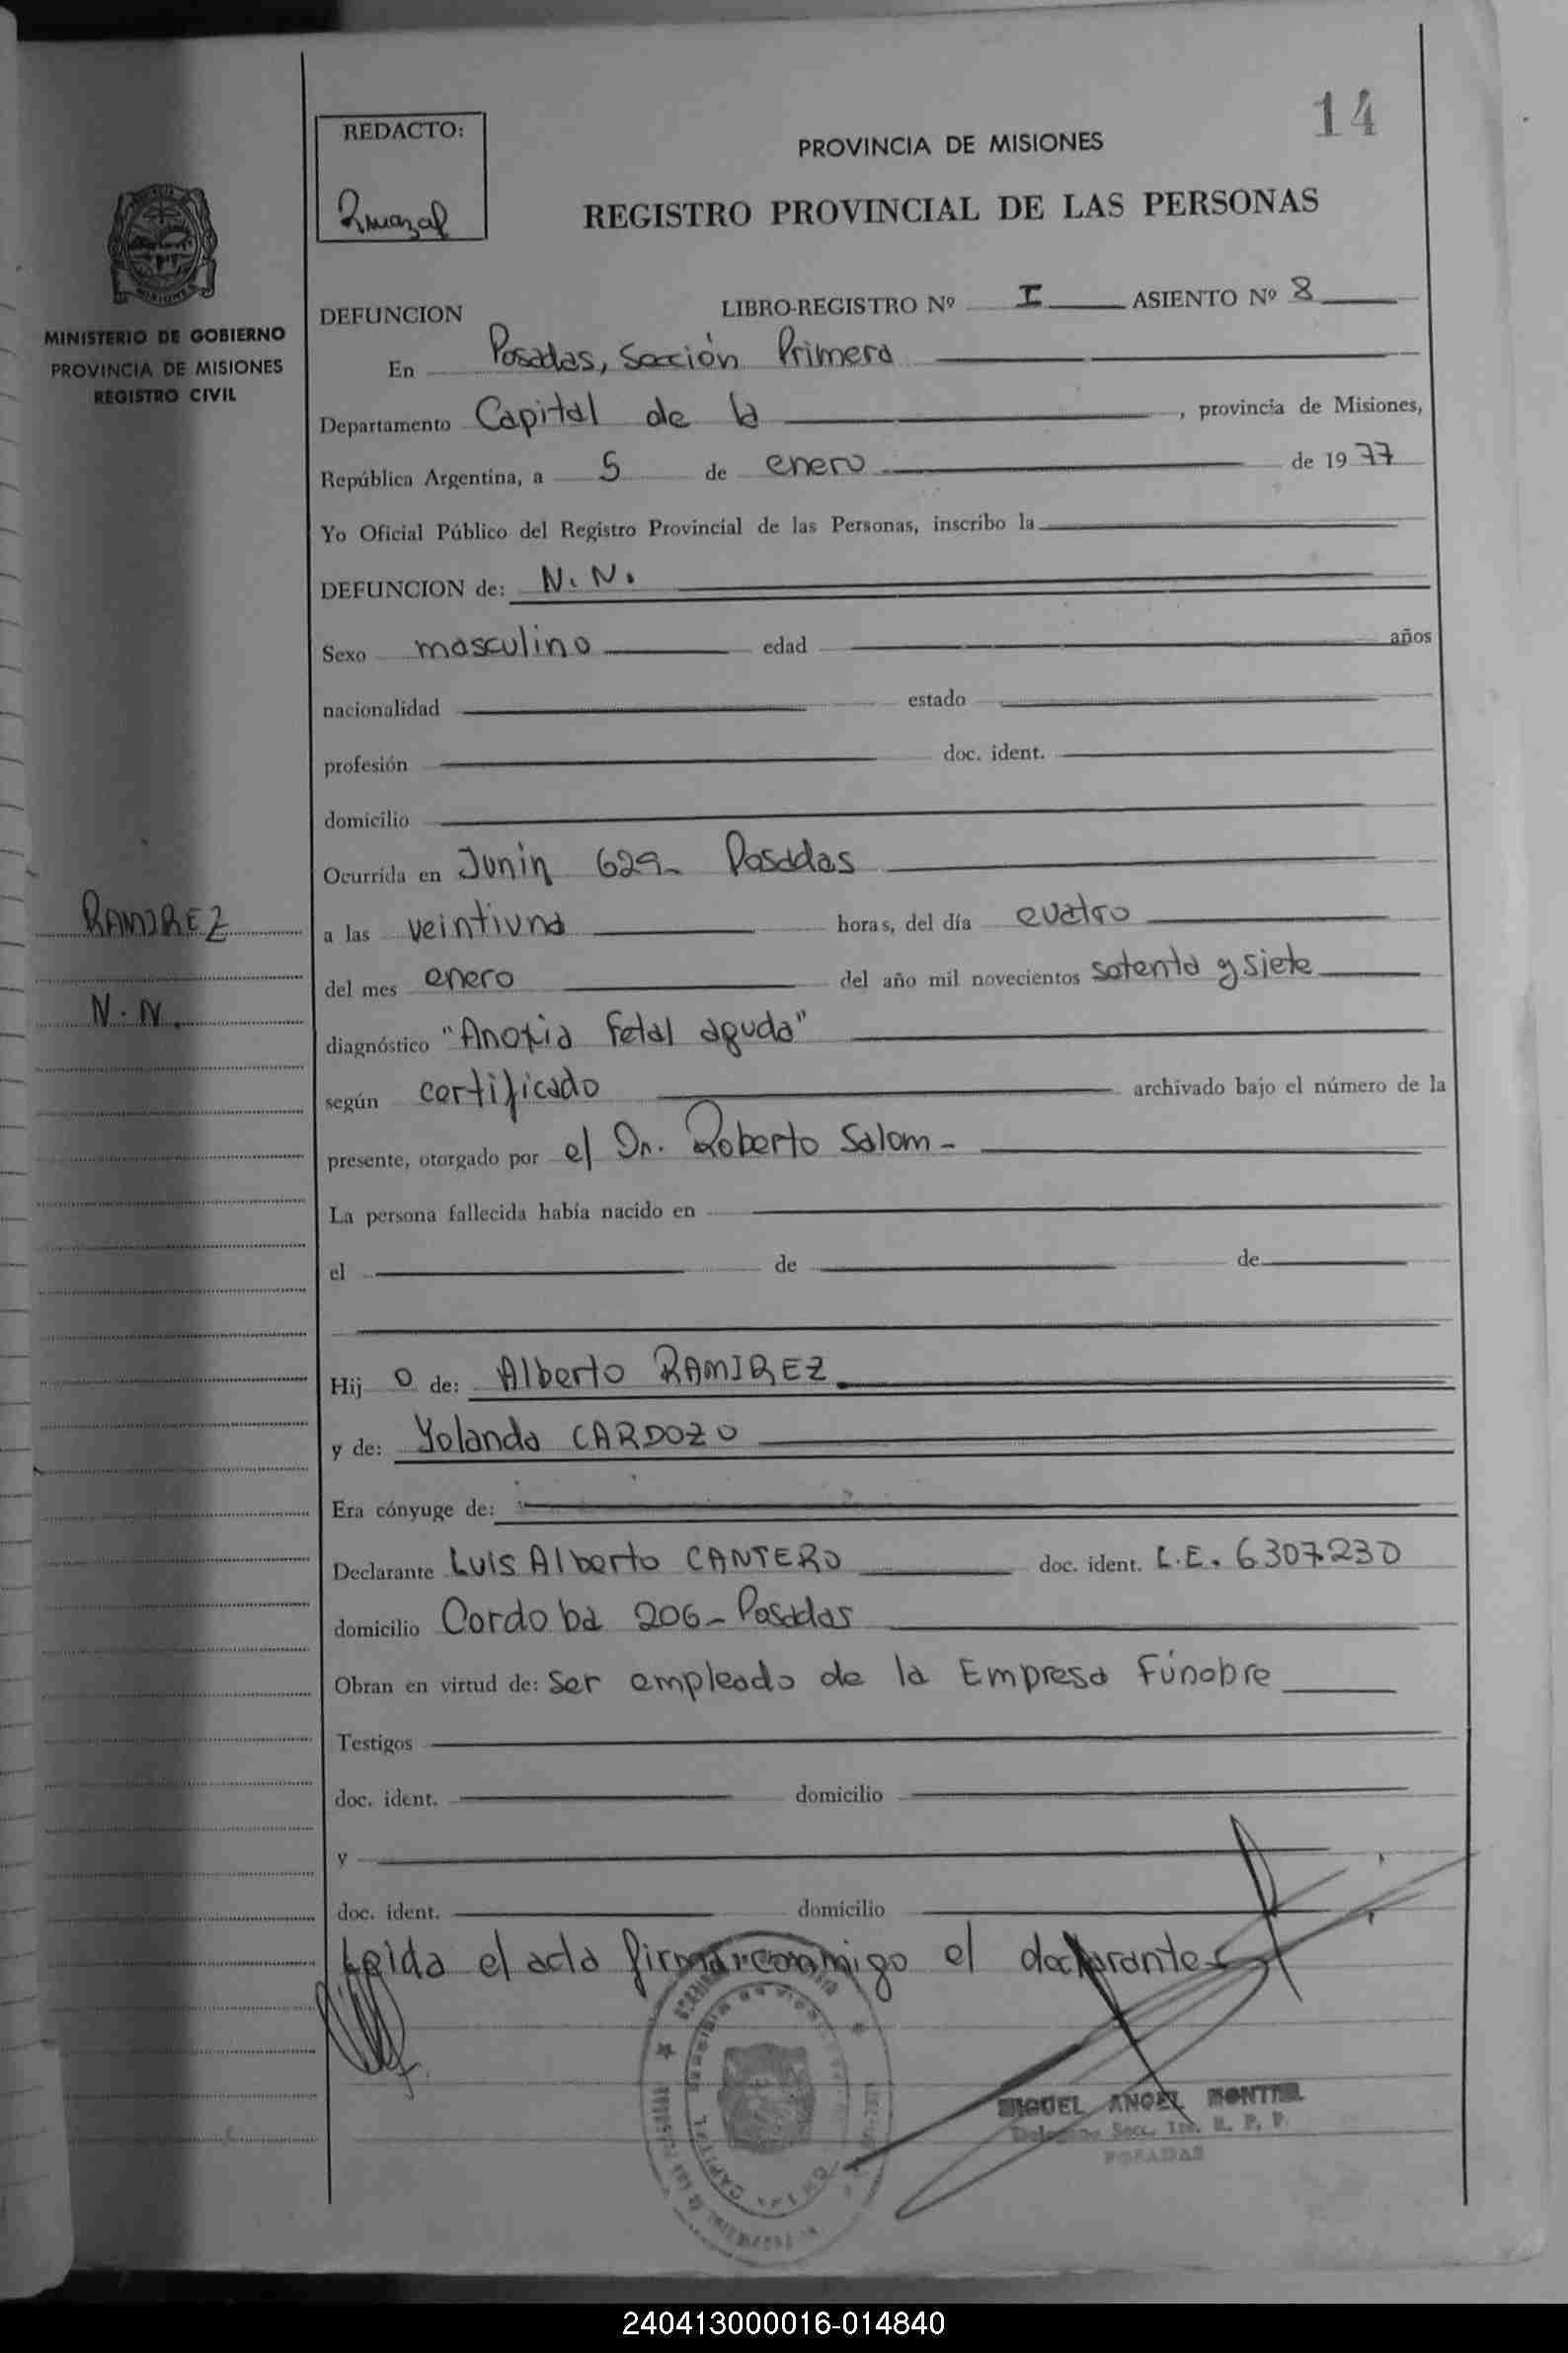 14
REDACTO:
PROVINCIA DE MISIONES
REGISTRO PROVINCIAL DE LAS PERSONAS
MINISTERIO DE GOBIERNO
PROVINCIA DE MISIONES
REGISTRO CIVIL
DEFUNCION LIBRO-REGISTRO Nº I ASIENTO Nº 8
En Posadas, Sección Primera
Departamento Capital de la , provincia de Misiones,
República Argentina, a 5 de enero de 1977
Yo Oficial Público del Registro Provincial de las Personas, inscribo la
DEFUNCION de: N. N.
Sexo masculino edad años
nacionalidad estado
profesión doc. ident.
domicilio
Ocurrida en Junin 629- Posadas
RAMIREZ
N. N.
a las veintiuna horas, del día cuatro
del mes enero del año mil novecientos setenta y siete
diagnóstico "Anoxia Fetal aguda"
según certificado archivado bajo el número de la
presente, otorgado por el Dr. Roberto Salom -
La persona fallecida había nacido en
el de de
Hij o de: Alberto RAMIREZ
y de: Yolanda CARDOZO
Era cónyuge de:
Declarante Luis Alberto CANTERO doc. ident. L.E. 6307230
domicilio Cordoba 206- Posadas
Obran en virtud de: ser empleado de la Empresa Fúnebre
Testigos
doc. ident. domicilio
y
doc. ident. domicilio
Leida el acta firma conmigo el declarante
MIGUEL ANGEL MONTIEL
POSADAS
240413000016-014840